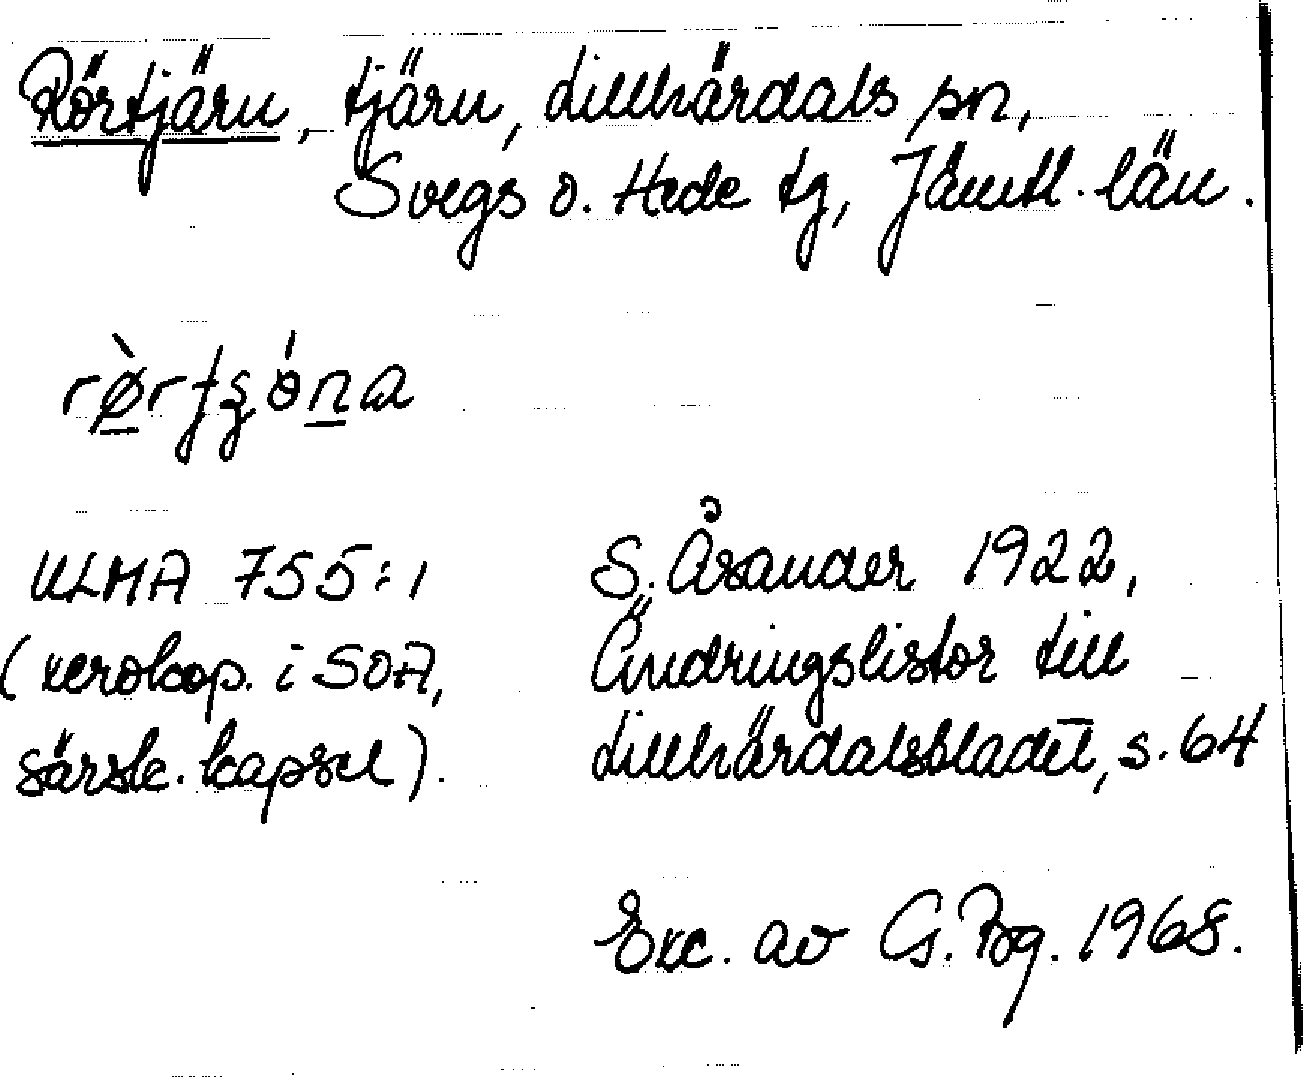 Rörtjärn, tjärn, Lillhärdals sn,
Svegs o. Hede tg, Jämtl. län.
ULMA 755:1
(xerokop. i SOA,
särsk. kapsel).
S. Åsander 1922,
Ändringslistor till
Lillhärdalsbladet, s. 64
Exc. av G. Bg. 1968.